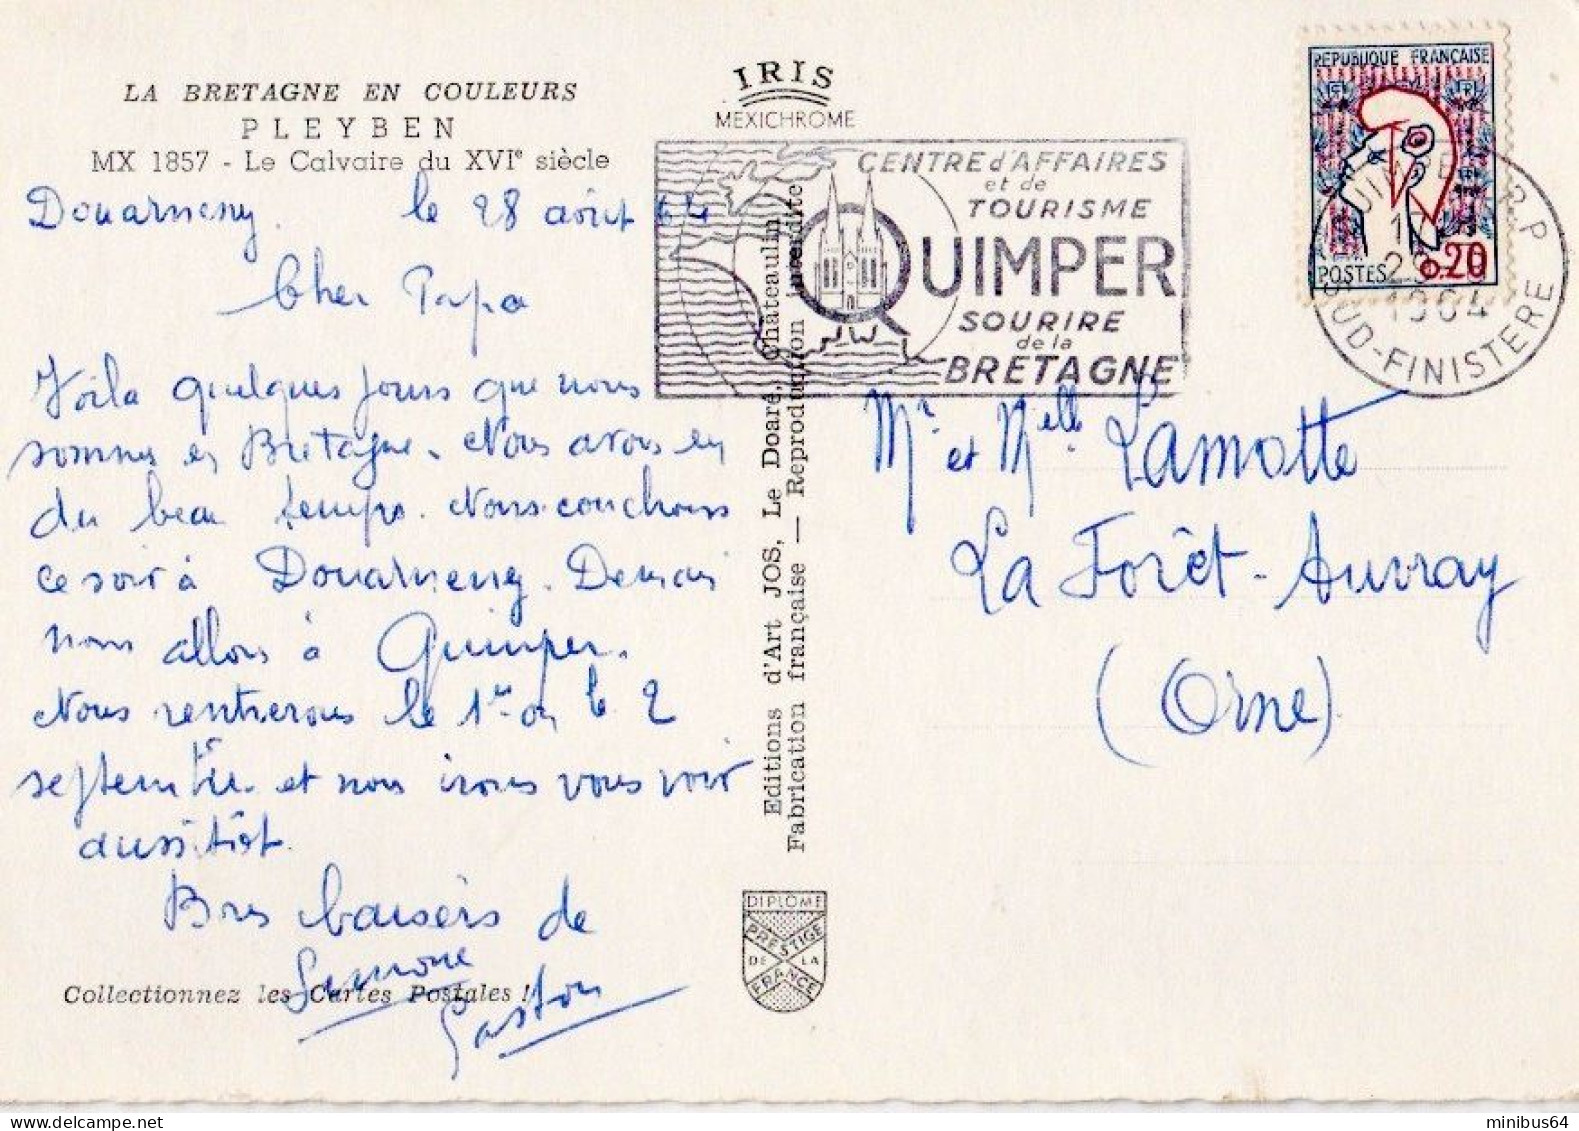 LA BRETAGNE EN COULEURS
PLEYBEN
MX 1857 - Le Calvaire du XVIe siècle
Douarneney. le 28 août 64
Cher Papa
Voila quelques jours que nous
sommes en Bretagne. Nous avons eu
du beau temps. Nous couchons
ce soir à Douarneney. Demain
nous allons à Quimper.
Nous rentrerons le 1er ou le 2
septembre et nous irons vous voir
aussitôt.
Bons baisers de
Simone
Gaston
Collectionnez les Cartes Postales !
IRIS
MEXICHROME
Editions d'Art JOS, Le Doaré, Châteaulin
Fabrication française — Reproduction interdite
DIPLOME
PRESTIGE
DE LA
FRANCE
CENTRE d'AFFAIRES
et de
TOURISME
QUIMPER
SOURIRE
de la
BRETAGNE
REPUBLIQUE FRANÇAISE
RF RF
POSTES 0,20
QUIMPER R.P
17
1964
SUD-FINISTERE
Mr et Melle Lamotte
La Forêt-Auvray
(Orne)
minibus64